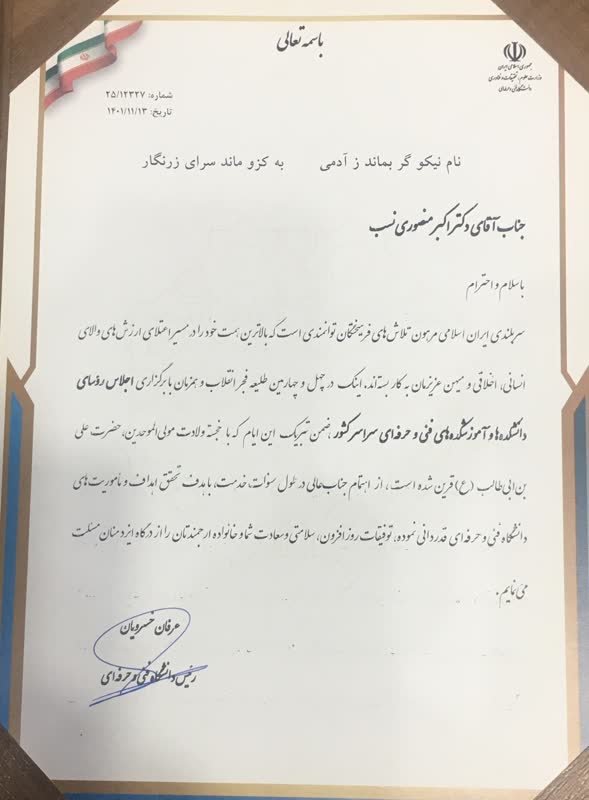 باسمه تعالی
جمهوری اسلامی ایران
وزارت علوم، تحقیقات و فناوری
دانشگاه فنی و حرفه‌ای
شماره: ۲۵/۱۲۳۲۷
تاریخ: ۱۴۰۱/۱۱/۱۳
نام نیکو گر بماند ز آدمی به کزو ماند سرای زرنگار
جناب آقای دکتر اکبر منصوری نسب
با سلام و احترام
سربلندی ایران اسلامی مرهون تلاش‌های فرهیختگان توانمندی است که بالاترین همت خود را در مسیر اعتلای ارزش‌های والای
انسانی، اخلاقی و میهن عزیزمان به کار بسته‌اند. اینک در چهل و چهارمین طلیعه فجر انقلاب و همزمان با برگزاری اجلاس رؤسای
دانشکده‌ها و آموزشکده‌های فنی و حرفه‌ای سراسر کشور، ضمن تبریک این ایام که با خجسته ولادت مولی الموحدین، حضرت علی
بن ابی طالب (ع) قرین شده است، از اهتمام جناب‌عالی در طول سنوات خدمت، با هدف تحقق اهداف و مأموریت‌های
دانشگاه فنی و حرفه‌ای قدردانی نموده، توفیقات روز افزون، سلامتی و سعادت شما و خانواده ارجمندتان را از درگاه ایزد منان مسئلت
می نمایم.
عرفان خسرویان
رئیس دانشگاه فنی و حرفه‌ای